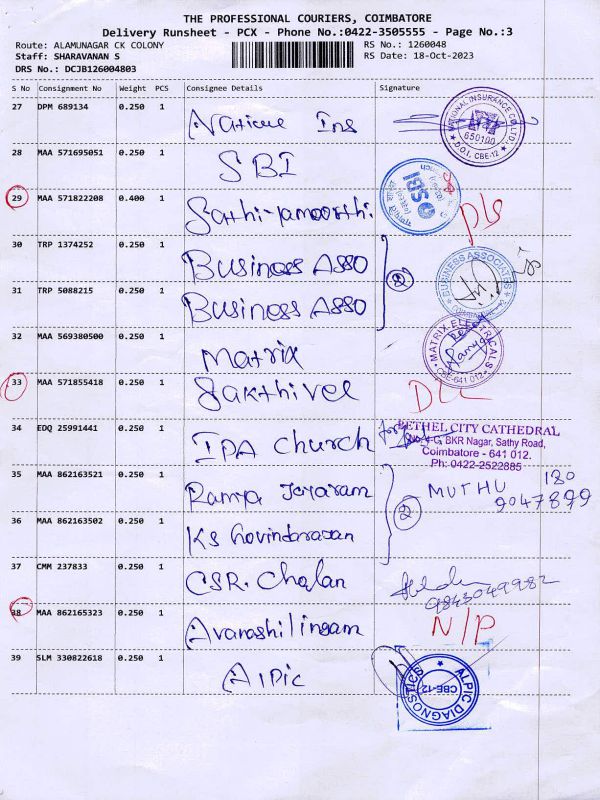 THE PROFESSIONAL COURIERS, COIMBATORE
Delivery Runsheet - PCX - Phone No.:0422-3505555 - Page No.:3
Route: ALAMUNAGAR CK COLONY RS No.: 1260048
Staff: SHARAVANAN S RS Date: 18-Oct-2023
DRS No.: DCJB126004803
S No Consignment No Weight PCS Consignee Details Signature
27 DPM 689134 0.250 1 Ins
NATIONAL INSURANCE CO LTD
650100
D.O.I, CBE-12
28 MAA 571695051 0.250 1 SBI
SBI
29 MAA 571822208 0.400 1
30 TRP 1374252 0.250 1 Business Asso 2
BUSINESS ASSOCIATES
31 TRP 5088215 0.250 1 Business Asso
32 MAA 569380500 0.250 1 Matrix
MATRIX ELECTRICALS
CBE-641 012
33 MAA 571855418 0.250 1 Sakthivel
34 EDQ 25991441 0.250 1 IPA church
BETHEL CITY CATHEDRAL
BKR Nagar, Sathy Road,
Coimbatore - 641 012.
Ph: 0422-2522885
35 MAA 862163521 0.250 1 Ramya Jayaram 2 MUTHU 180
9047899
36 MAA 862163502 0.250 1 KS Govindarasan
37 CMM 237833 0.250 1 CSR. Chalan
9843049982
38 MAA 862165323 0.250 1 Avanashilingam N/P
39 SLM 330822618 0.250 1 Alpic
ALPIC DIAGNOSTICS
CBE-12